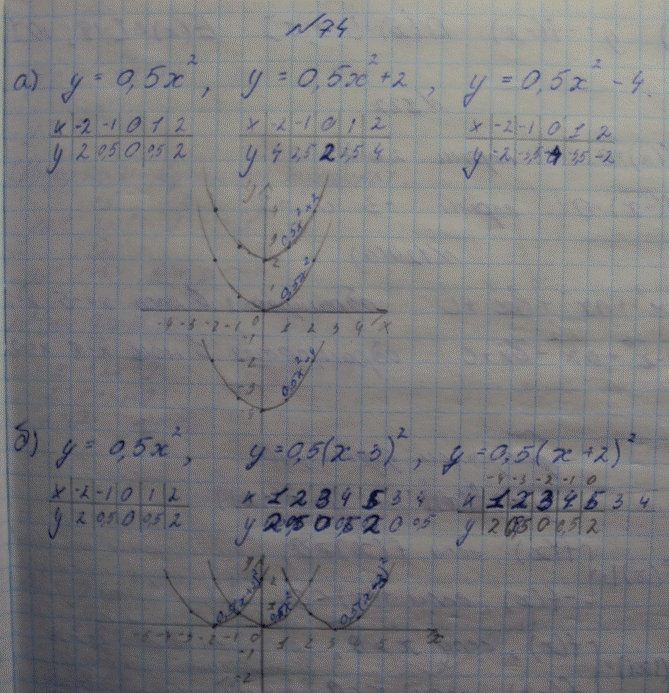 №74
а) y = 0,5x², y = 0,5x²+2, y = 0,5x² - 4.
x -2 -1 0 1 2
y 2 0,5 0 0,5 2
x -2 -1 0 1 2
y 4 2,5 2 2,5 4
x -2 -1 0 1 2
y -2 -3,5 -4 -3,5 -2
y
0,5x²+2
2
0,5x²
1
-4 -3 -2 -1 0 1 2 3 4 x
-1
-2
-3
б) y = 0,5x², y=0,5(x-3)², y=0,5(x+2)²
x -2 -1 0 1 2
y 2 0,5 0 0,5 2
x 1 2 3 4 5 3 4
y 2 0,5 0 0,5 2 0 0,5
-4 -3 -2 -1 0
x 1 2 3 4 5 3 4
y 2 0,5 0 0,5 2
y
2
0,5x²
0,5(x-3)²
-2 -1 0 1 2 3 4 5 x
-1
-2